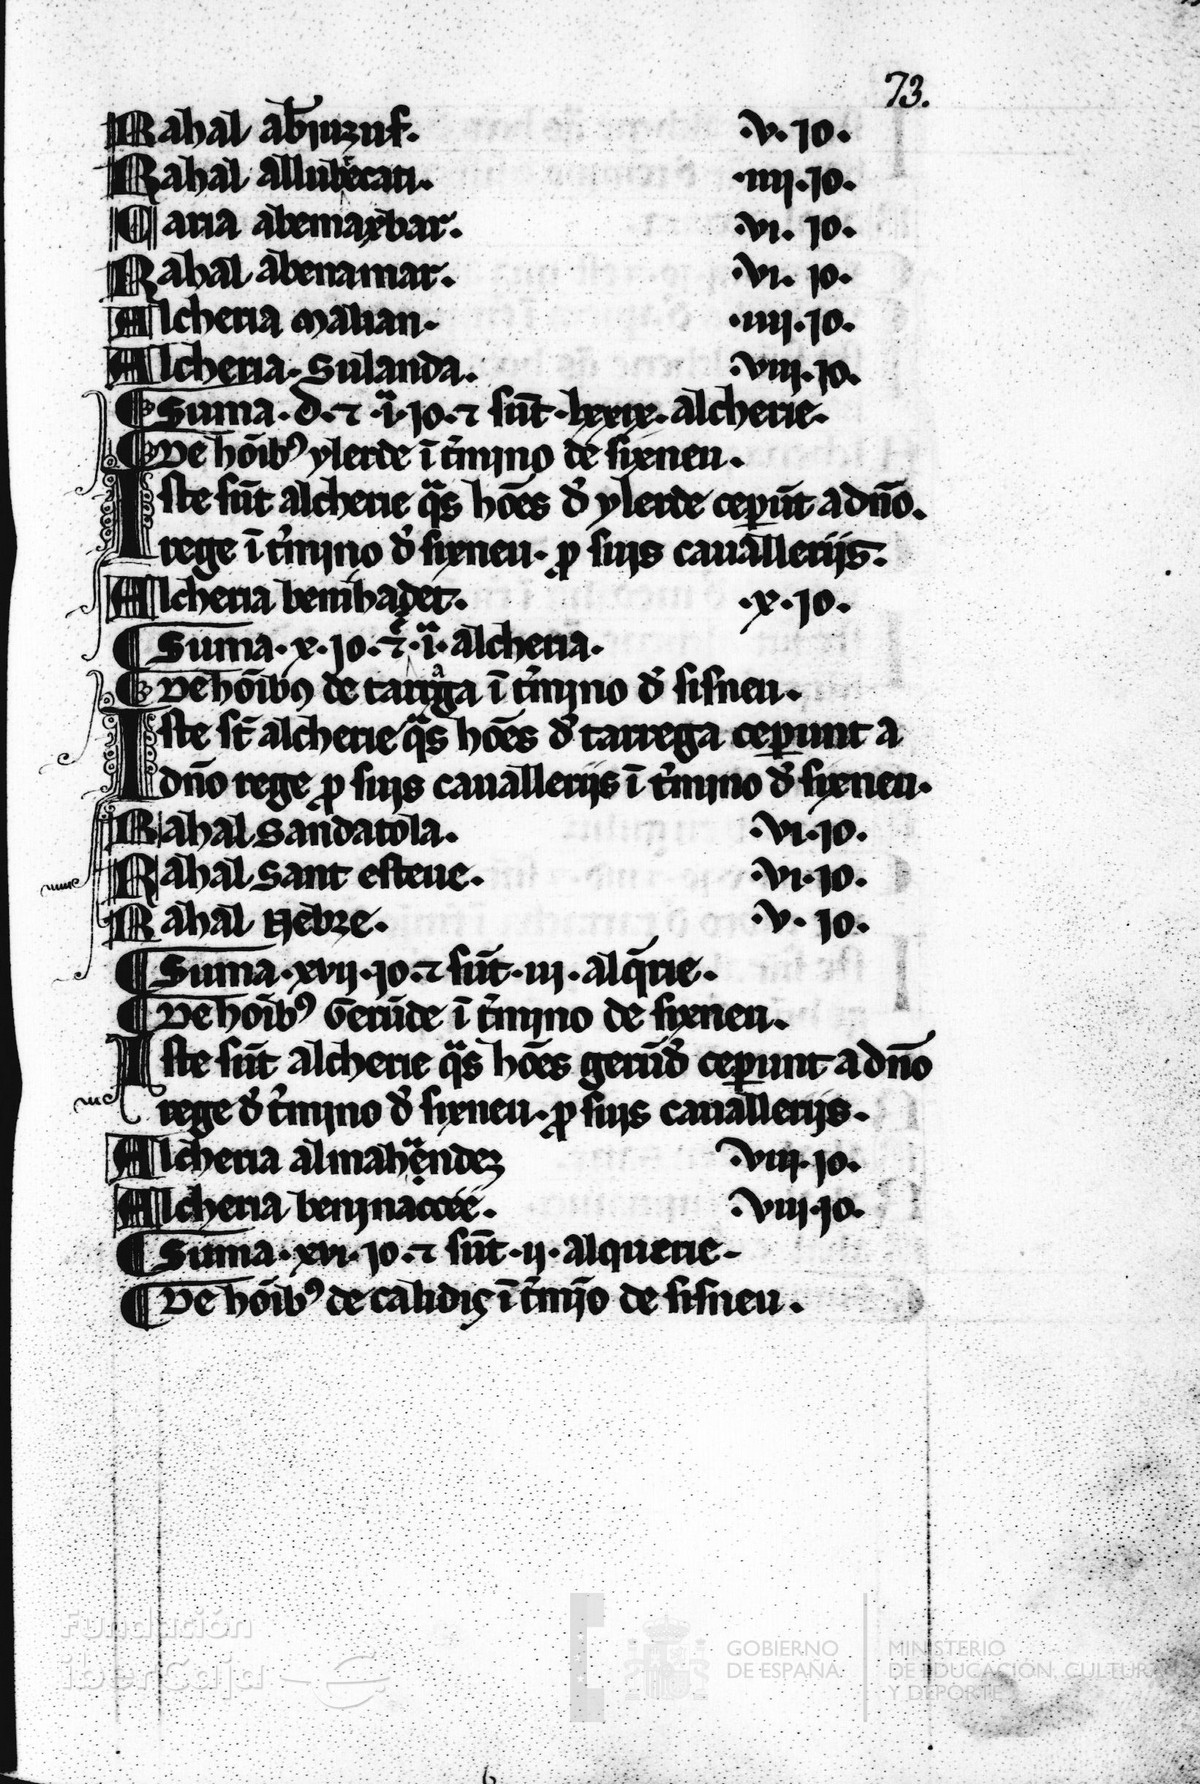 73.
Rahal abījuzuf. .v. jo.
Rahal allubecati. .iiij. jo.
Caria abemaxbar. .vi. jo.
Rahal abenamar. .vi. jo.
Alcheria malian. .iiij. jo.
Alcheria. Sulanda. .viii. jo.
¶ Suma. d. ⁊ .i. jo. ⁊ sūt. lxxix. alcherie.
¶ De hōib⁹ ylerde ī t̄mino de sixneu.
Iste sūt alcherie q̄s hōes d̄ ylerde ceperūt a dn̄o.
rege ī t̄mino d̄ sixneu. ꝑ suis cauallerijs.
Alcheria benihadet. .x. jo.
¶ Suma. x. jo. ⁊ .i. alcheria.
¶ De hōib⁹ de tarrega ī t̄mino d̄ sisneu.
Iste st̄ alcherie q̄s hōes d̄ tarrega ceperunt a
dn̄o rege ꝑ suis cauallerijs ī t̄mino d̄ sixneu.
Rahal Sandatola. .vi. jo.
Rahal Sant esteue. .vi. jo.
Rahal Nebze. .v. jo.
¶ Suma. xvii. jo. ⁊ sūt. iii. alq̄rie.
¶ De hōib⁹ Gerūde ī t̄mino de sixneu.
Iste sūt alcherie q̄s hōes gerūd̄ ceperunt a dn̄o
rege d̄ t̄mino d̄ sixneu. ꝑ suis cauallerijs.
Alcheria almahendez .viii. jo.
Alcheria beninaccee. .viii. jo.
¶ Suma. xvi. jo. ⁊ sūt. ij. alquerie.
¶ De hōib⁹ de calidiç ī t̄mīo de sisneu.
Fundación
iberCaja
GOBIERNO
DE ESPAÑA
MINISTERIO
DE EDUCACIÓN, CULTURA
Y DEPORTE